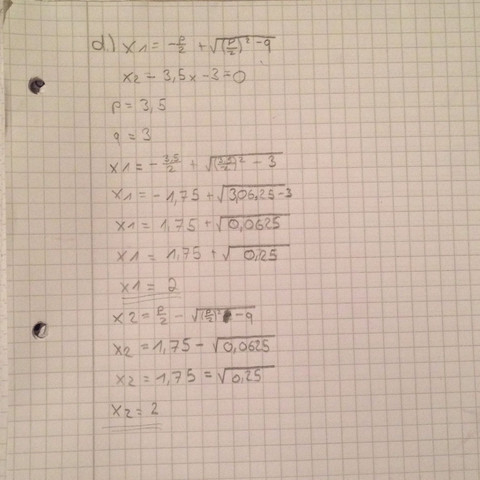 d.) x1 = -p/2 + √((p/2)² - q)
x2 - 3,5x - 3 = 0
p = 3,5
q = 3
x1 = - 3,5/2 + √((3,5/2)² - 3
x1 = - 1,75 + √3,06,25 - 3
x1 = 1,75 + √0,0625
x1 = 1,75 + √0,25
x1 = 2
x2 = p/2 - √((p/2)² - q
x2 = 1,75 - √0,0625
x2 = 1,75 = √0,25
x2 = 2